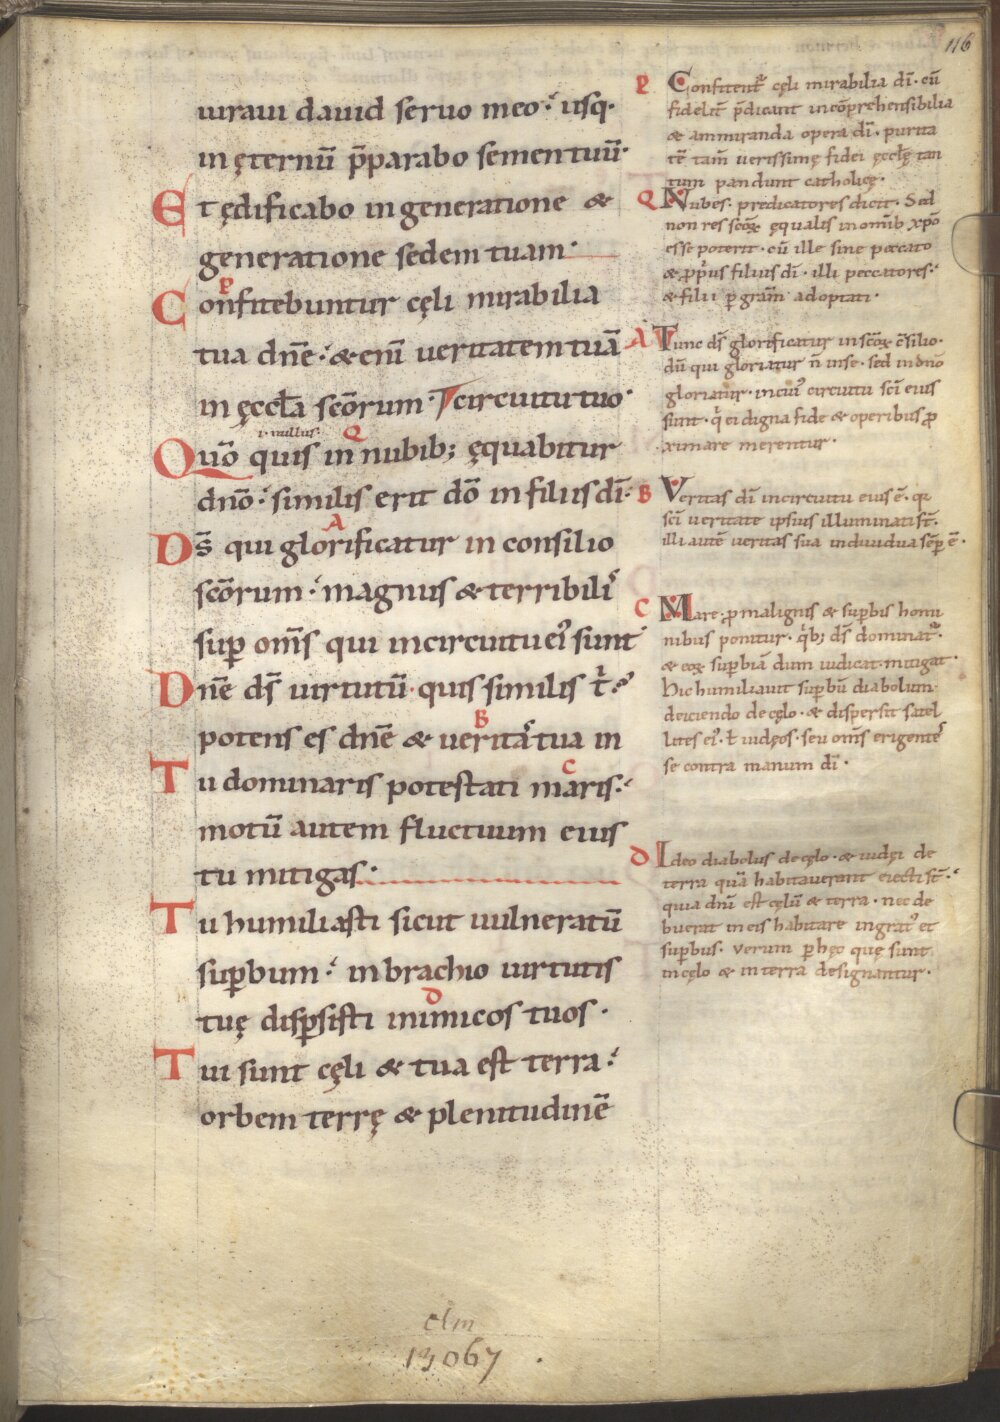 116
iuraui dauid seruo meo: usq·
in ęternū p̄parabo semen tuū·
Et ędificabo in generatione &
generatione sedem tuam·
P
Confitebuntur cęli mirabilia
tua dn̄e: & enī ueritatem tuā
in ęccl̄a scōrum· circuitu tuo·
i· nullus· Q
Quō quis in nubib; ęquabitur
dnō: similis erit dō in filiis dī·
A
Ds̄ qui glorificatur in consilio
scōrum: magnus & terribilis
sup om̄s qui in circuitu eius sunt
Dn̄e ds̄ uirtutū· quis similis t̄
B
potens es dn̄e & ueritas tua in
C
Tu dominaris potestati maris:
motū autem fluctuum eius
tu mitigas·
Tu humiliasti sicut uulneratū
supbum: in brachio uirtutis
D
tuę dispsisti inimicos tuos·
Tui sunt cęli & tua est terra:
orbem terrę & plenitudinē
P Confitent cęli mirabilia dī· cū
fideliū p̄dicant incōprehensibilia
& ammiranda opera dī· purita
tē tam̄ uerissimę fidei ęccl̄ę tan
tum pandunt catholicę·
Q Nubes· predicatores dicit· Sed
non res scōꝝ ęqualis in omib xp̄o
esse poterit· cū ille sine peccato
& ppius filius dī· illi peccatores:
& filii p gram̄ adoptati·
A Tunc ds̄ glorificatur in scōꝝ c̄silio·
dū qui gloriatur n̄ in se· sed in dnō
gloriatur· in cui' circuitu sc̄i eius
sunt· q̇ ei digna fide & operibus p
ximare merentur·
B Veritas dī in circuitu eius ē· qa
sc̄i ueritate ipsius illuminati st̄·
illi autē ueritas sua indiuidua sēp ē·
C Mare· p malignis & supbis homi
nibus ponitur· q̇b; ds̄ dominat·
& eoꝝ supbiā dum iudicat mitigat·
Hic humiliauit supbū diabolum
deiciendo de cęlo· & dispersit satel
lites ei'· t̄ iudęos· seu om̄s erigentes
se contra manum dī·
D Ideo diabolus de cęlo· & iudęi de
terra quā habitauerant eiecti st̄:
quia dnī est cęlū & terra· nec de
buerat in eis habitare ingrat' et
supbus· Verum p hęc quę sunt
in cęlo & in terra designantur·
clm
13067